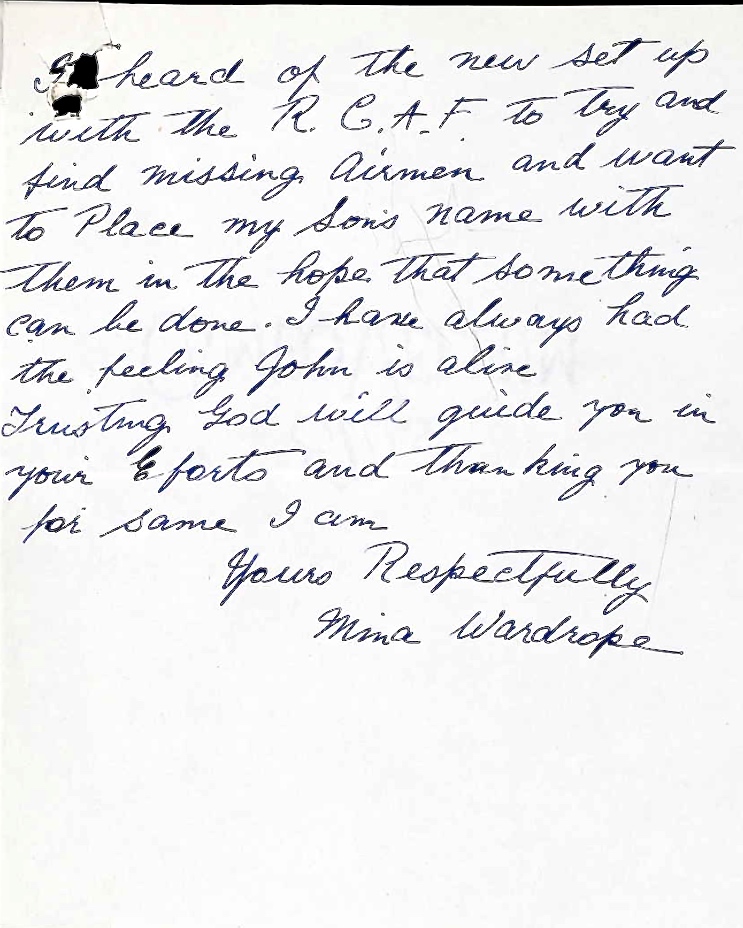 I heard of the new set up
with the R. C.A.F. to try and
find missing Airmen and want
to Place my Son's name with
them in the hope that something
can be done. I have always had
the feeling John is alive
Trusting God will guide you in
your Efforts and thanking you
for same I am
Yours Respectfully
Mina Wardrope